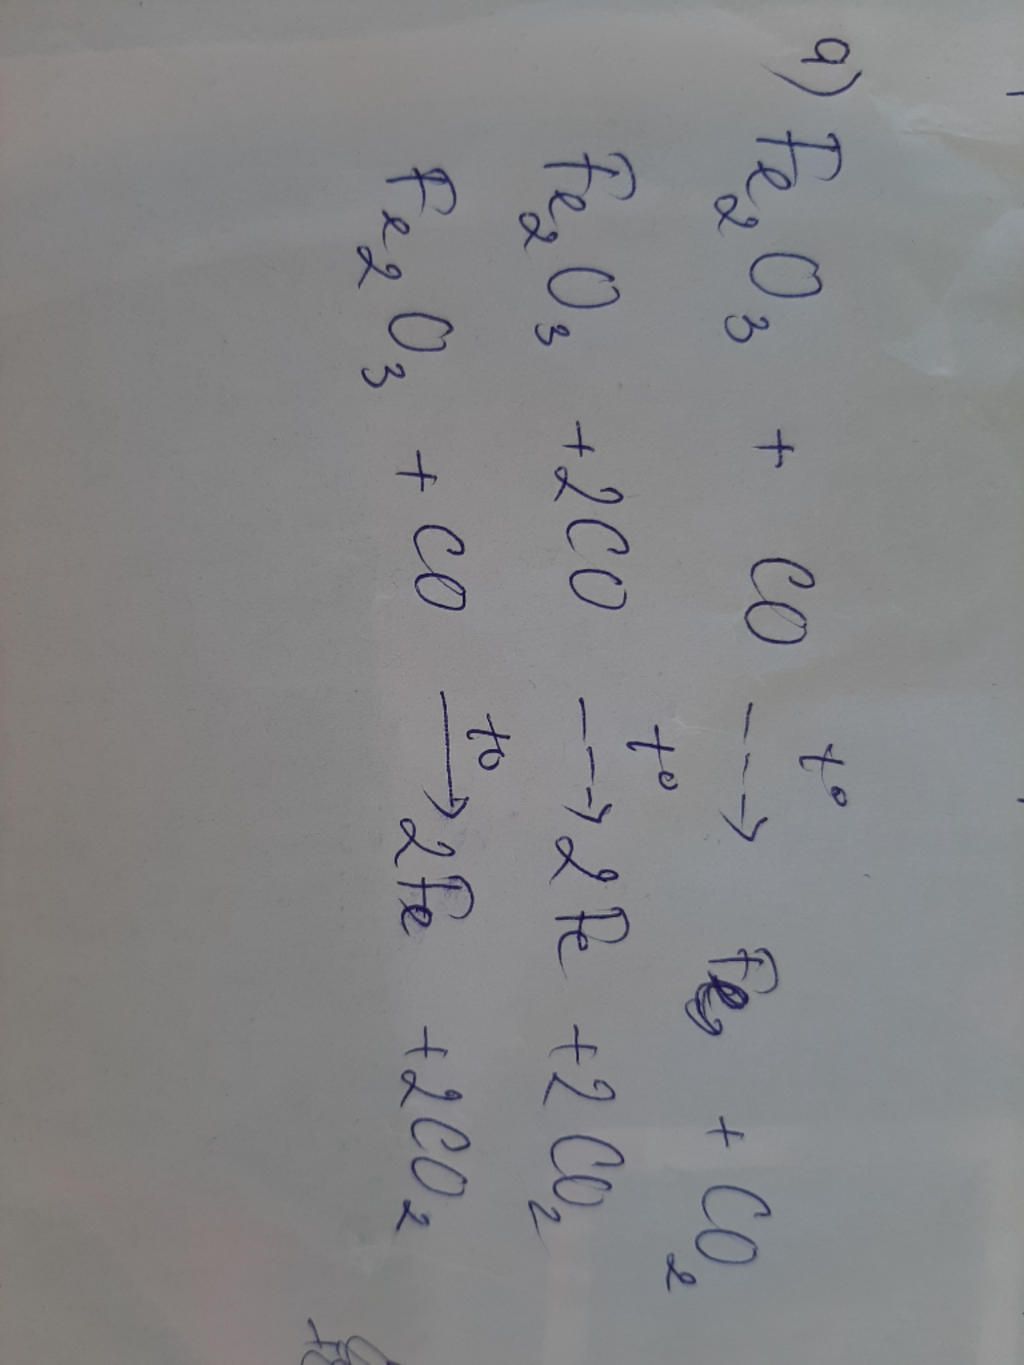 a) Fe₂O₃ + CO -->
t° Fe + CO₂
Fe₂O₃ +2CO -->
t° 2Fe +2CO₂
Fe₂O₃ + CO ⟶
t° 2Fe +2CO₂